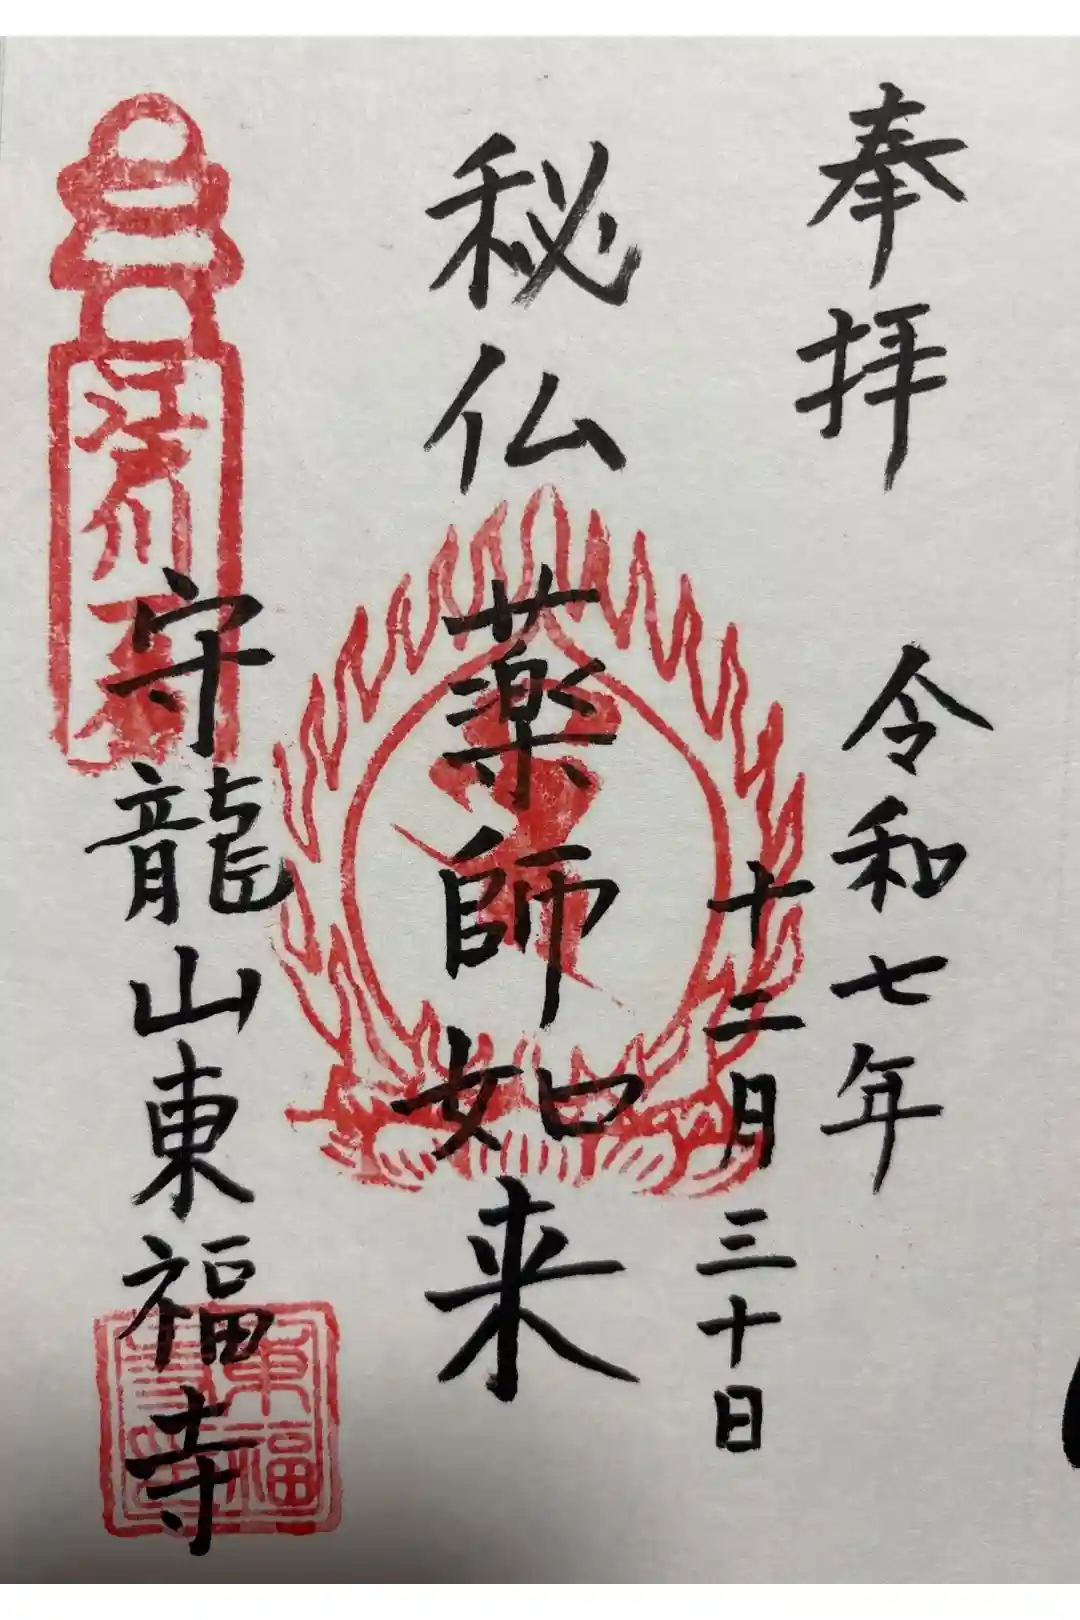 奉拝
令和七年
十二月三十日
秘仏
薬師如来
守龍山東福寺
東福